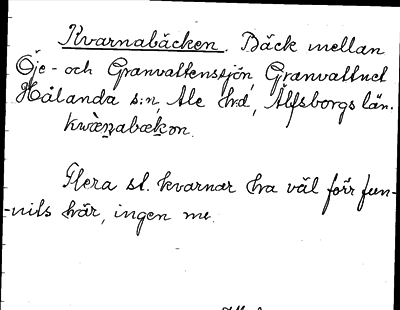 Kvarnabäcken. Bäck mellan
Öje- och Granvattenssjön, Granvattnet
Hålanda s:n, Ale hd, Älfsborgs län.
kwæ̀n̲abæk̲on.
Flera st. kvarnar ha väl förr fun-
-nits här, ingen nu.